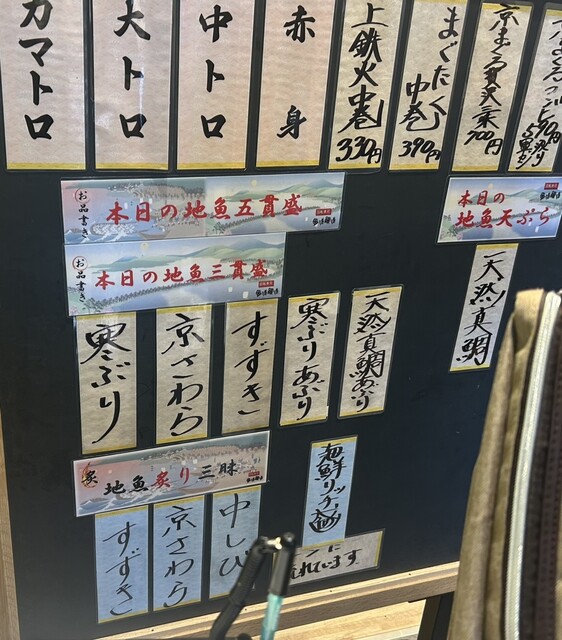 カマトロ
大トロ
中トロ
赤身
上鉄火中巻
330円
まぐたく
中巻
390円
京まぐろ贅沢三栗
700円
590円
お品書き
本日の地魚五貫盛
お品書き
本日の地魚三貫盛
本日の
地魚天ぷら
寒ぶり
京さわら
すずき
寒ぶりあぶり
天然真鯛あぶり
天然真鯛
炙
地魚炙り三昧
すずき
京さわら
中しび
海鮮リッチ
れています